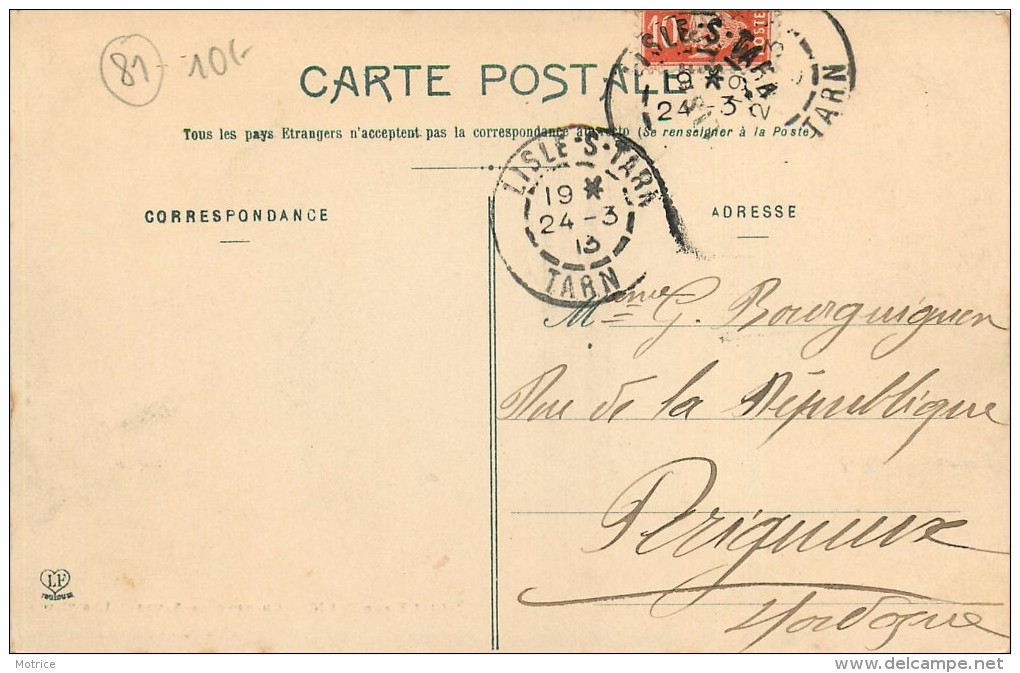 81 - 10€
10
POSTE
LISLE-S-TARN
19 *
24 -3
TARN
CARTE POSTALE
Tous les pays Etrangers n'acceptent pas la correspondance au recto (Se renseigner à la Poste)
LISLE-S-TARN
19 *
24 -3
13
TARN
CORRESPONDANCE
ADRESSE
Mme G. Bourguignon
Rue de la République
Périgueux
Dordogne
LF
Toulouse
Motrice
www.delcampe.net